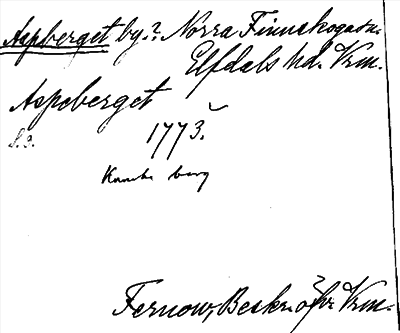 Aspberget by? Norra Finnskoga sn.
Elfdals hd. Vrm.
Aspeberget
s. 3.
1773.
Kanske berg
Fernow, Beskr. öfv. Vrm.